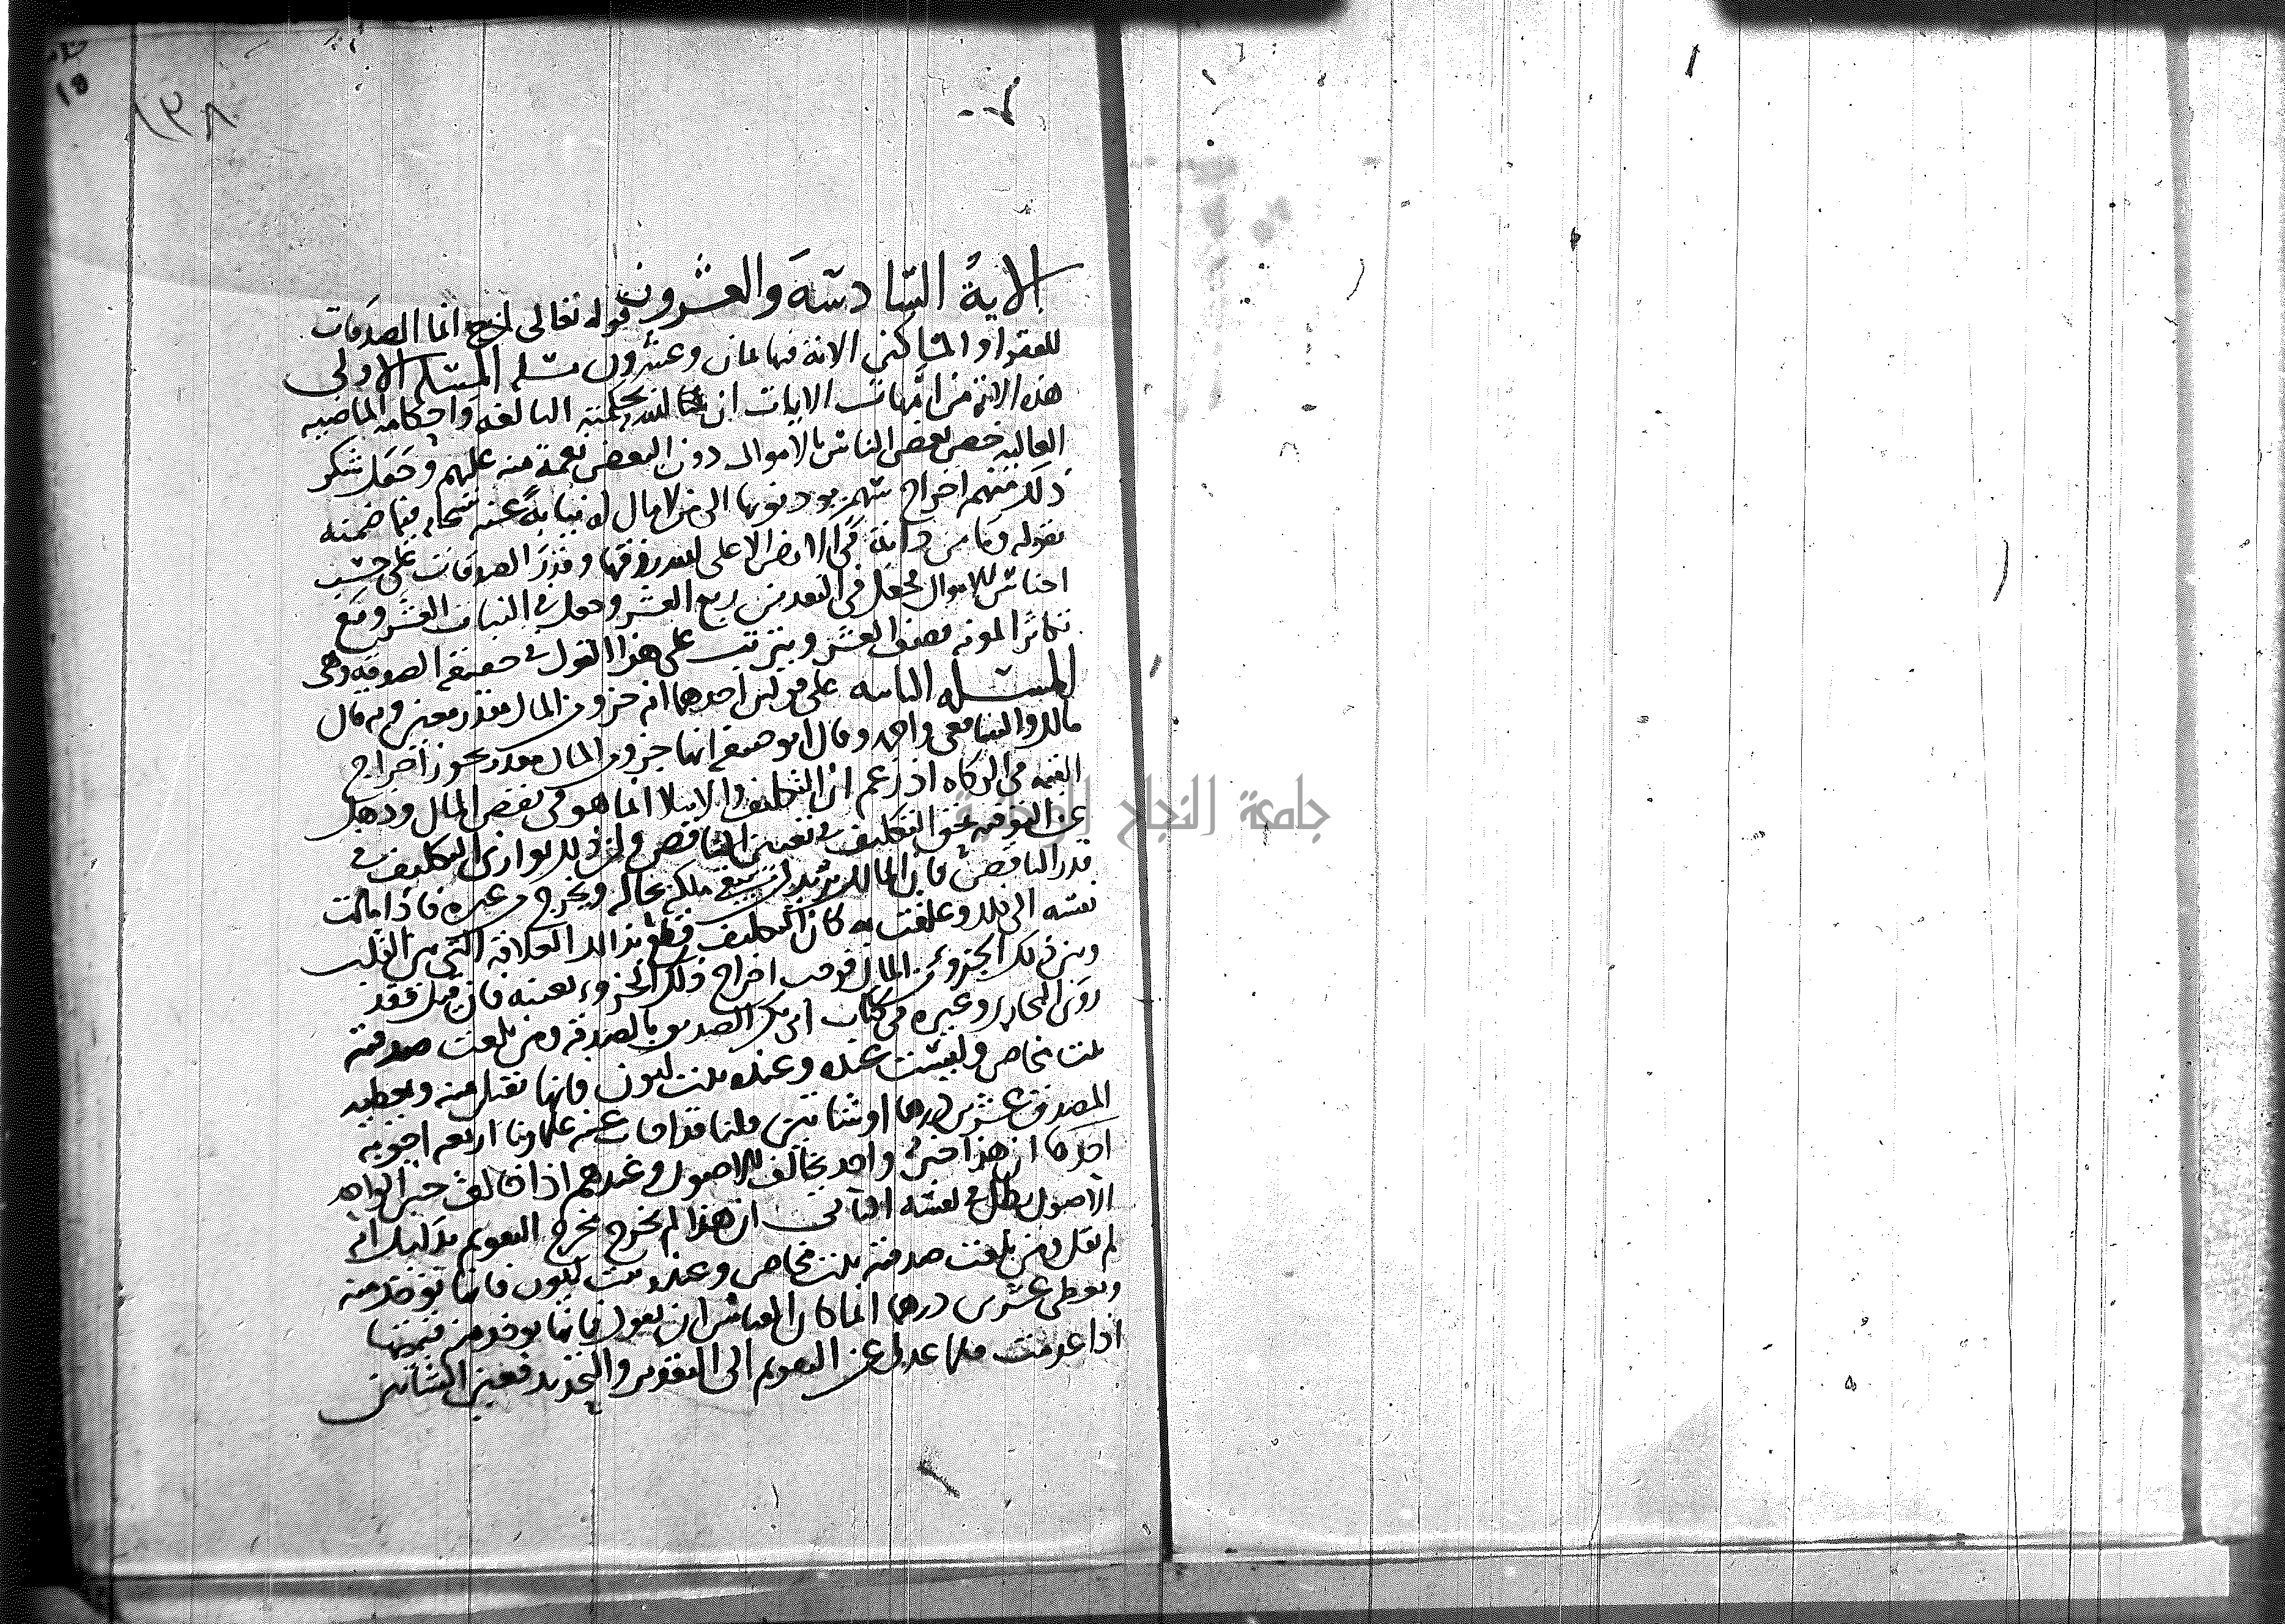 ١٢٨
الاية السادسة والعشرون قوله تعالى انما الصدقات
للفقراء والمساكين الاية فيها ثمان وعشرون مسلة المسلة الاولى
هذه الاية من امهات الايات ان الله بحكمته البالغة واحكامه الماضية
العالية خص بعض الناس بالاموال دون البعض نعمة منه عليهم وجعل شكر
ذلك منهم اخراج سهم يودونها الى من لا مال له نيابة عنه سبحانه فيما ضمنه
بقوله وما من دابة في الارض الا على الله رزقها وقدر الصدقات على حسب
اجناس الاموال فجعل في النقدين ربع العشر وجعل في النبات العشر ومع
تكاثر المونة نصف العشر ويترتب على هذا القول في حقيقة الصدقة وهي
المسلة الثانية على قولين احدهما انه جزو من المال مقدر معين وبه قال
مالك والشافعي واحمد وقال ابو حنيفة انها جزو من المال مقدر يجوز اخراج
القيمة في الزكاة اذ زعم ان التكليف والابتلا انما هو في نقص المال وذهل
عن التوفية بحق التكليف في تعيين الناقص وان ذلك يوازي التكليف في
قدر الناقص فان المالك يريد ان يبقى ملكه بحاله ويخرج من غيره فاذا مالت
نفسه الى ذلك وعلقت به كان التكليف قطع تلك العلاقة التي بين القلب
وبين ذلك الجزو من المال فوجب اخراج ذلك الجزو بعينه فان قيل فقد
روى البخاري وغيره في كتاب ابي بكر الصديق بالصدقة ومن بلغت صدقته
بنت مخاض وليست عنده وعنده بنت لبون فانها تقبل منه ويعطيه
المصدق عشرين درهما او شاتين قلنا قد اجاب عنه علماونا اربعة اجوبة
احدها ان هذا خبر واحد يخالف الاصول وعندهم اذا خالف خبر الواحد
الاصول بطل في نفسه الثاني ان هذا لم يخرج مخرج التقويم بدليل انه
لم يقل ومن بلغت صدقته بنت مخاض وعنده بنت لبون فانها توخذ منه
ويعطى عشرين درهما انما كان القياس ان يقول فانها توخذ منه قيمتها
اذا عدمت فلما عدل عن التقويم الى التقدير والتحديد فعين الشاتين
جامعة النجاح الوطنية